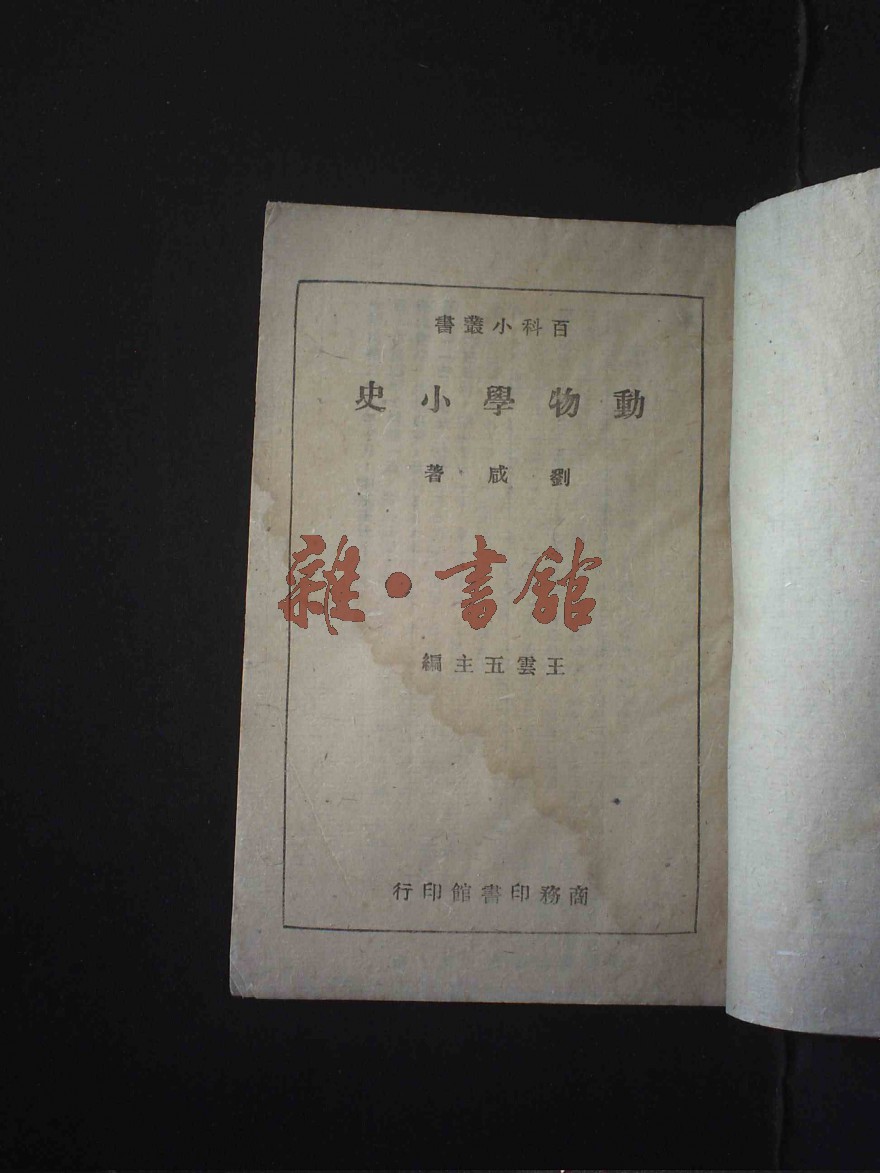 百科小叢書
動物學小史
劉咸著
雜·書館
王雲五主編
商務印書館印行